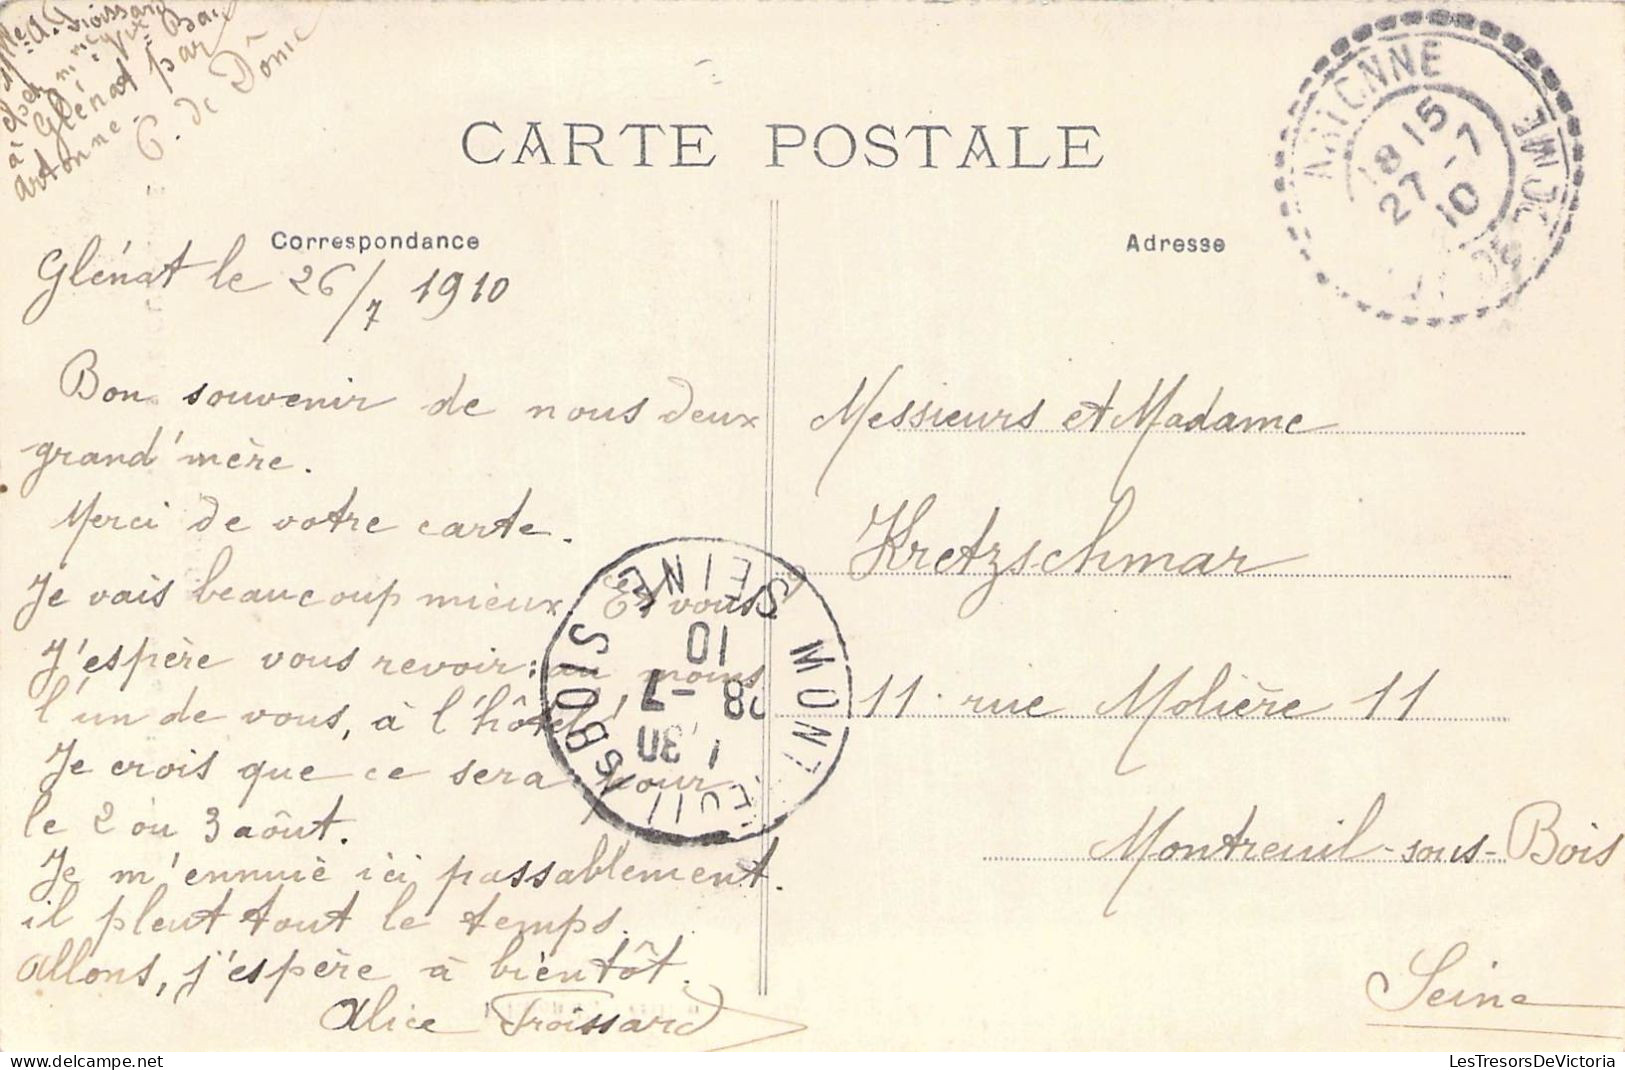 Mlle A. Froissard
chez Mme Vve Bar
à Glénat par
Artonne.
P. de Dôme
CARTE POSTALE
Correspondance
Adresse
18 15
27 -7
10
DOME
Glénat le 26/7 1910
Bon souvenir de nous deux
grand'mère.
Merci de votre carte.
Je vais beaucoup mieux. Et vous?
J'espère vous revoir: au moins
l'un de vous, à l'hôtel!
Je crois que ce sera pour
le 2 ou 3 août.
Je m'ennuie ici passablement.
il pleut tout le temps.
Allons, j'espère à bientôt.
Alice Froissard
Messieurs et Madame
Kretzschmar
11 rue Molière 11
Montreuil-sous-Bois
Seine
MONTREUIL S BOIS
SEINE
1 30
28 -7
10
LesTresorsDeVictoria